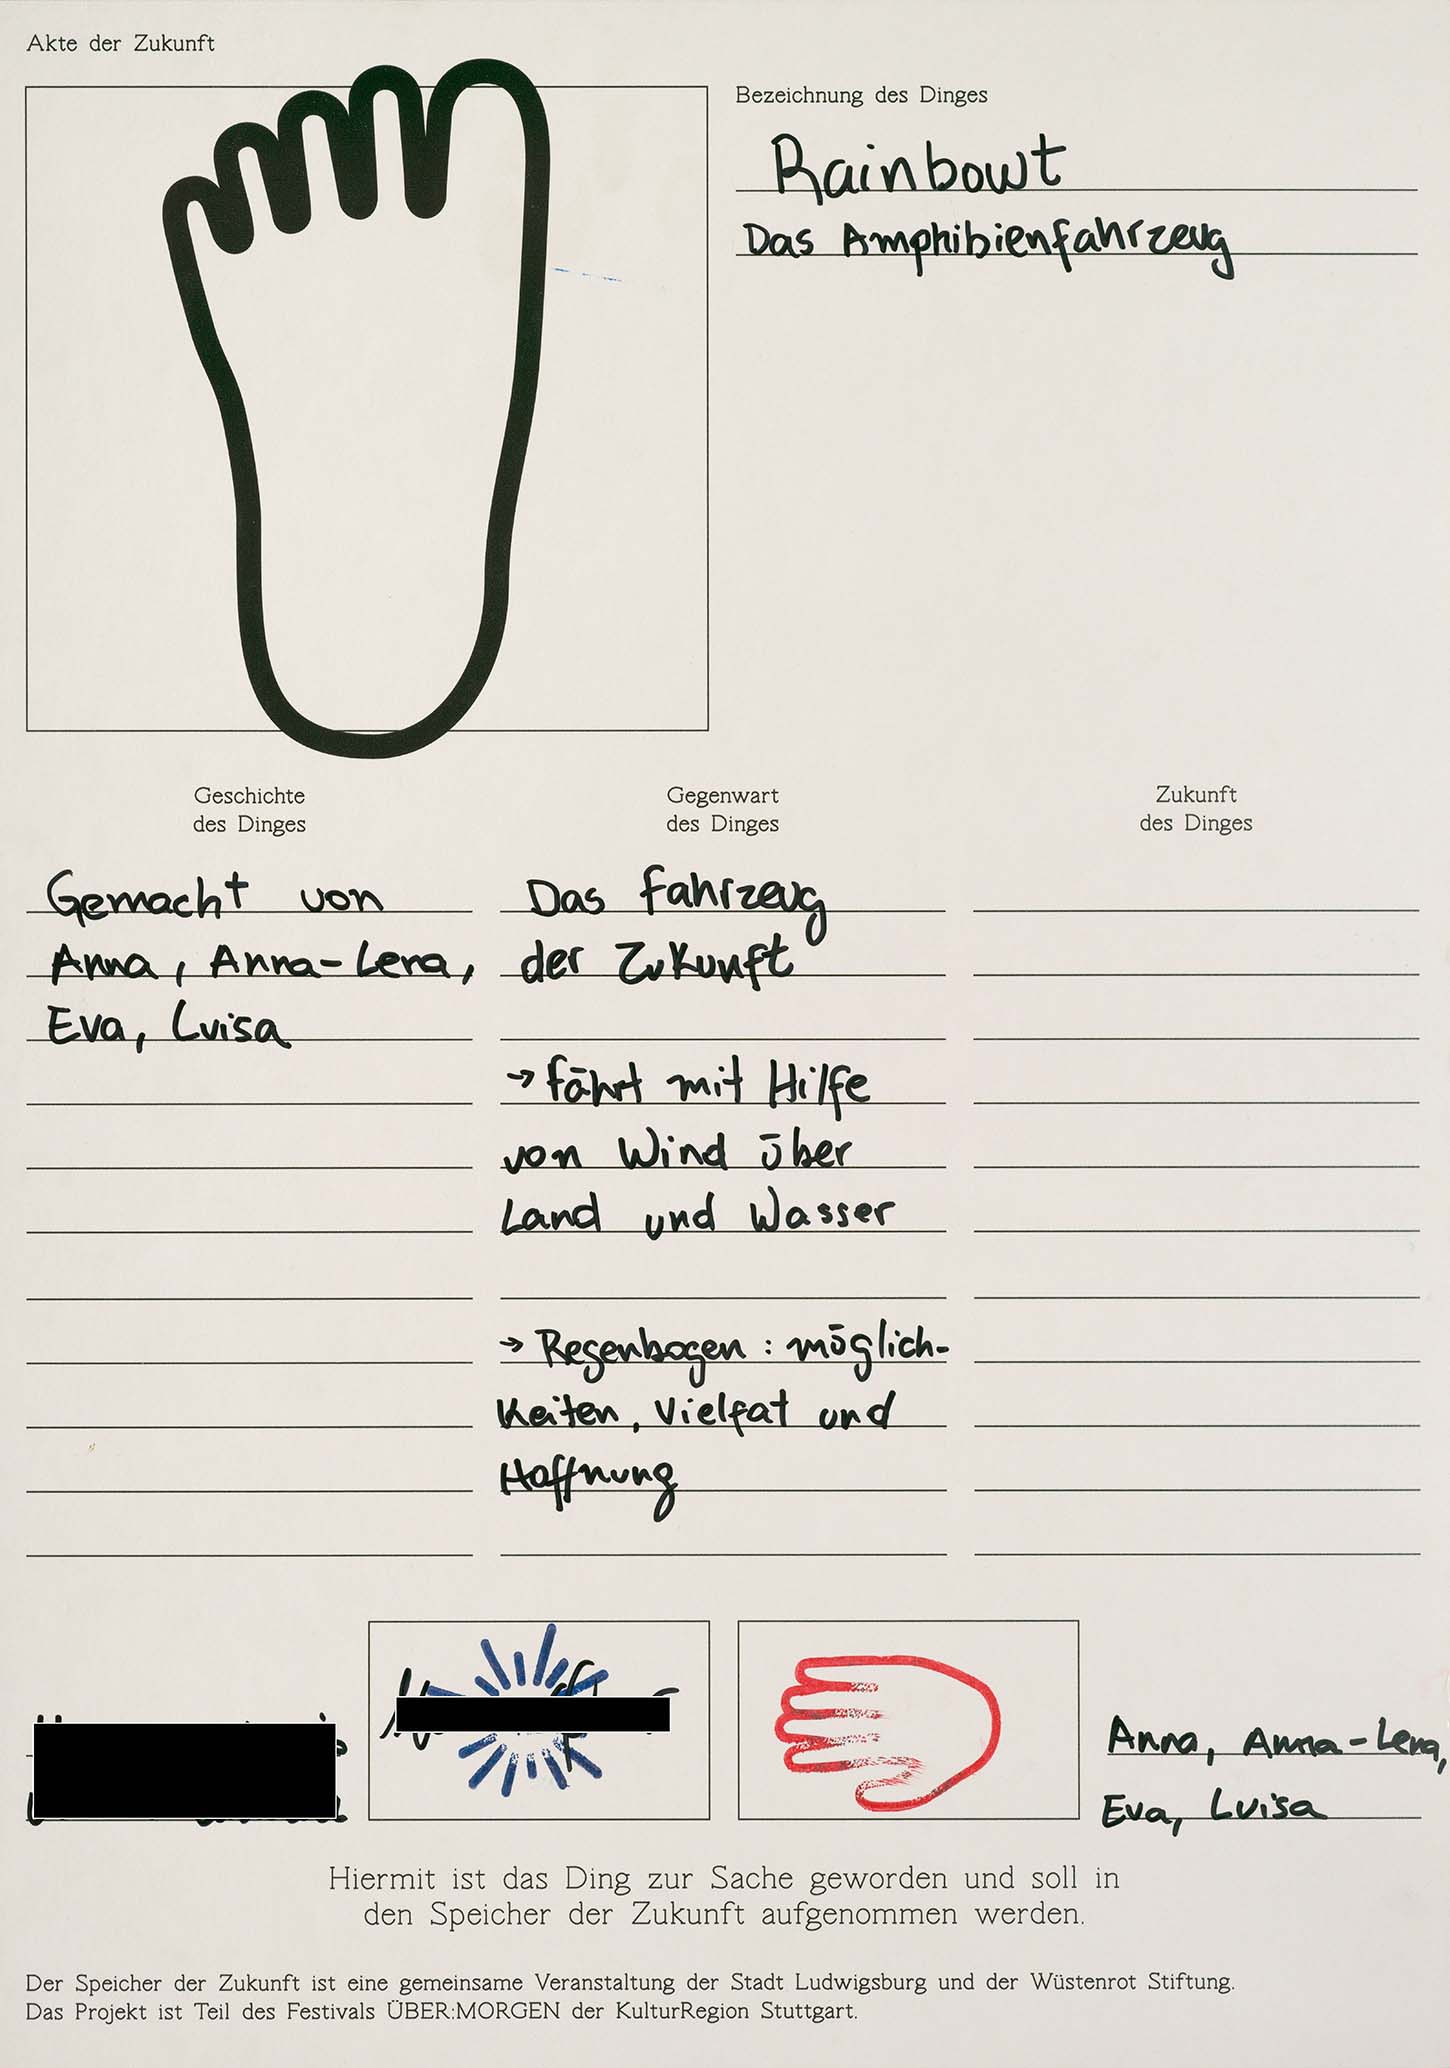 Akte der Zukunft
Bezeichnung des Dinges
Rainbowt
Das Amphibienfahrzeug
Geschichte
des Dinges
Gemacht von
Anna, Anna-Lena,
Eva, Luisa
Gegenwart
des Dinges
Das Fahrzeug
der Zukunft
→ fährt mit Hilfe
von Wind über
Land und Wasser
→ Regenbogen: möglich-
keiten, Vielfat und
Hoffnung
Zukunft
des Dinges
Anna, Anna-Lena,
Eva, Luisa
Hiermit ist das Ding zur Sache geworden und soll in
den Speicher der Zukunft aufgenommen werden.
Der Speicher der Zukunft ist eine gemeinsame Veranstaltung der Stadt Ludwigsburg und der Wüstenrot Stiftung.
Das Projekt ist Teil des Festivals ÜBER:MORGEN der KulturRegion Stuttgart.